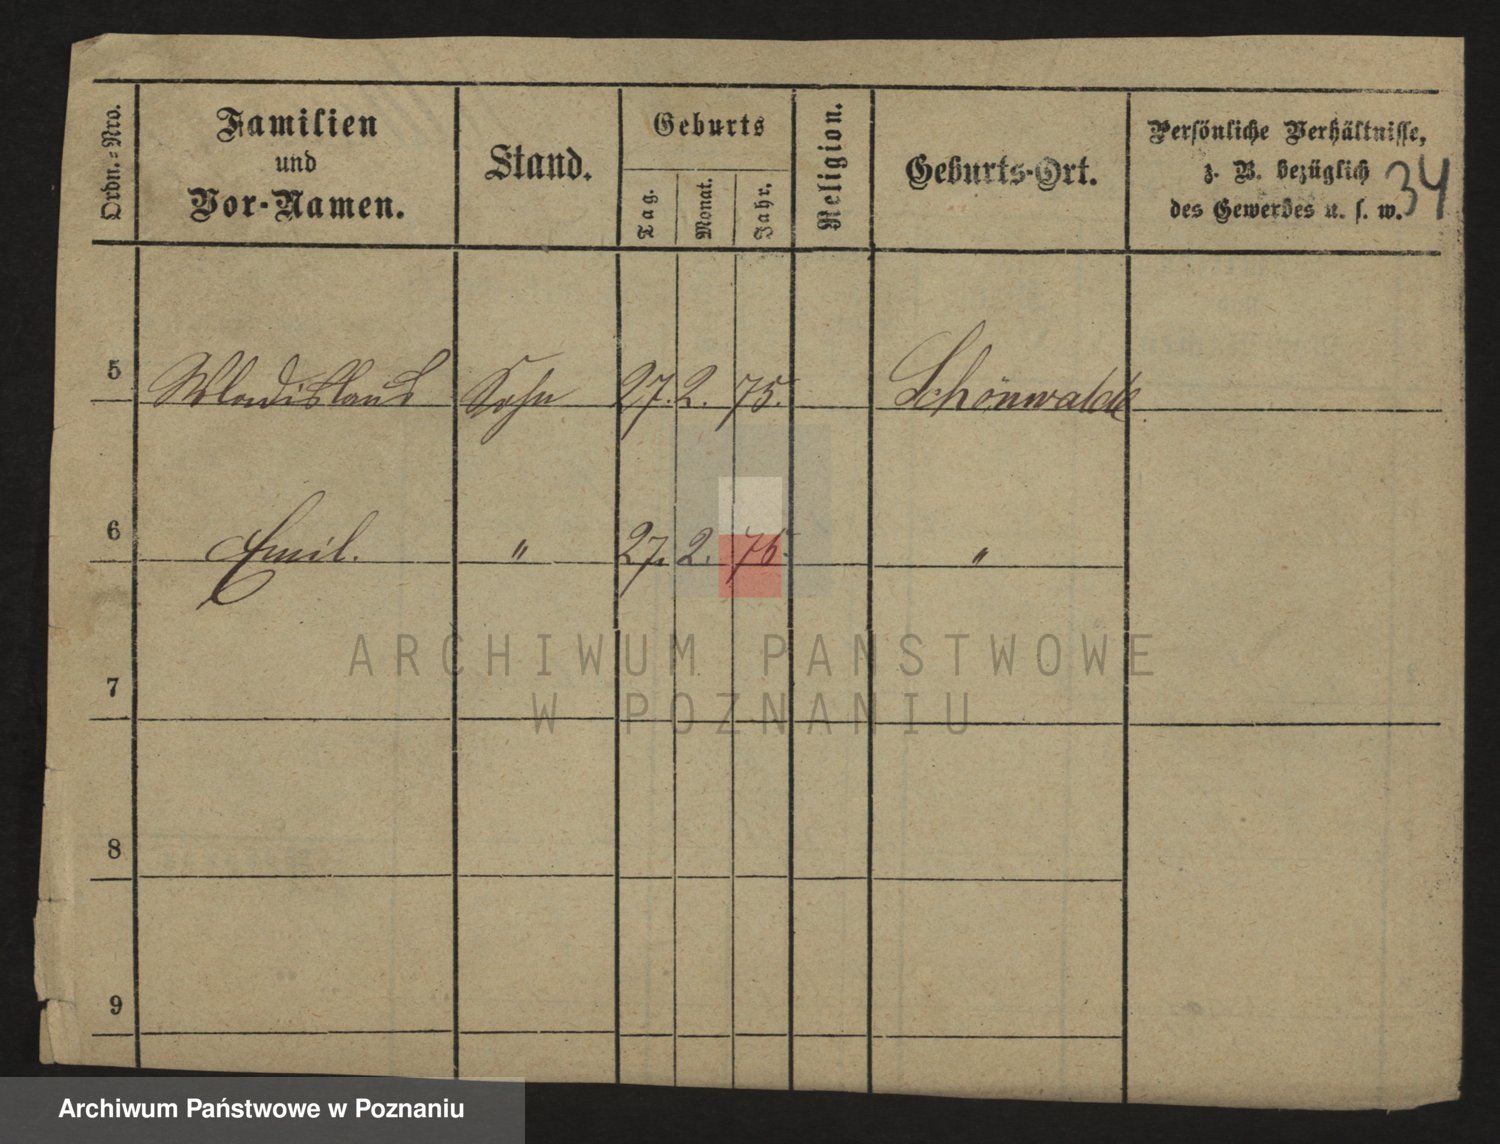 Ordn.-Nro.
Familien
und
Vor-Namen.
Stand.
Geburts
Tag.
Monat.
Jahr.
Religion.
Geburts-Ort.
Persönliche Verhältnisse,
z. B. bezüglich
des Gewerbes u. s. w.
34
5 Wladislaus Sohn 27. 2. 75. Schönwalde
6 Emil. " 27. 2. 76. "
7
8
9
ARCHIWUM PAŃSTWOWE
W POZNANIU
Archiwum Państwowe w Poznaniu